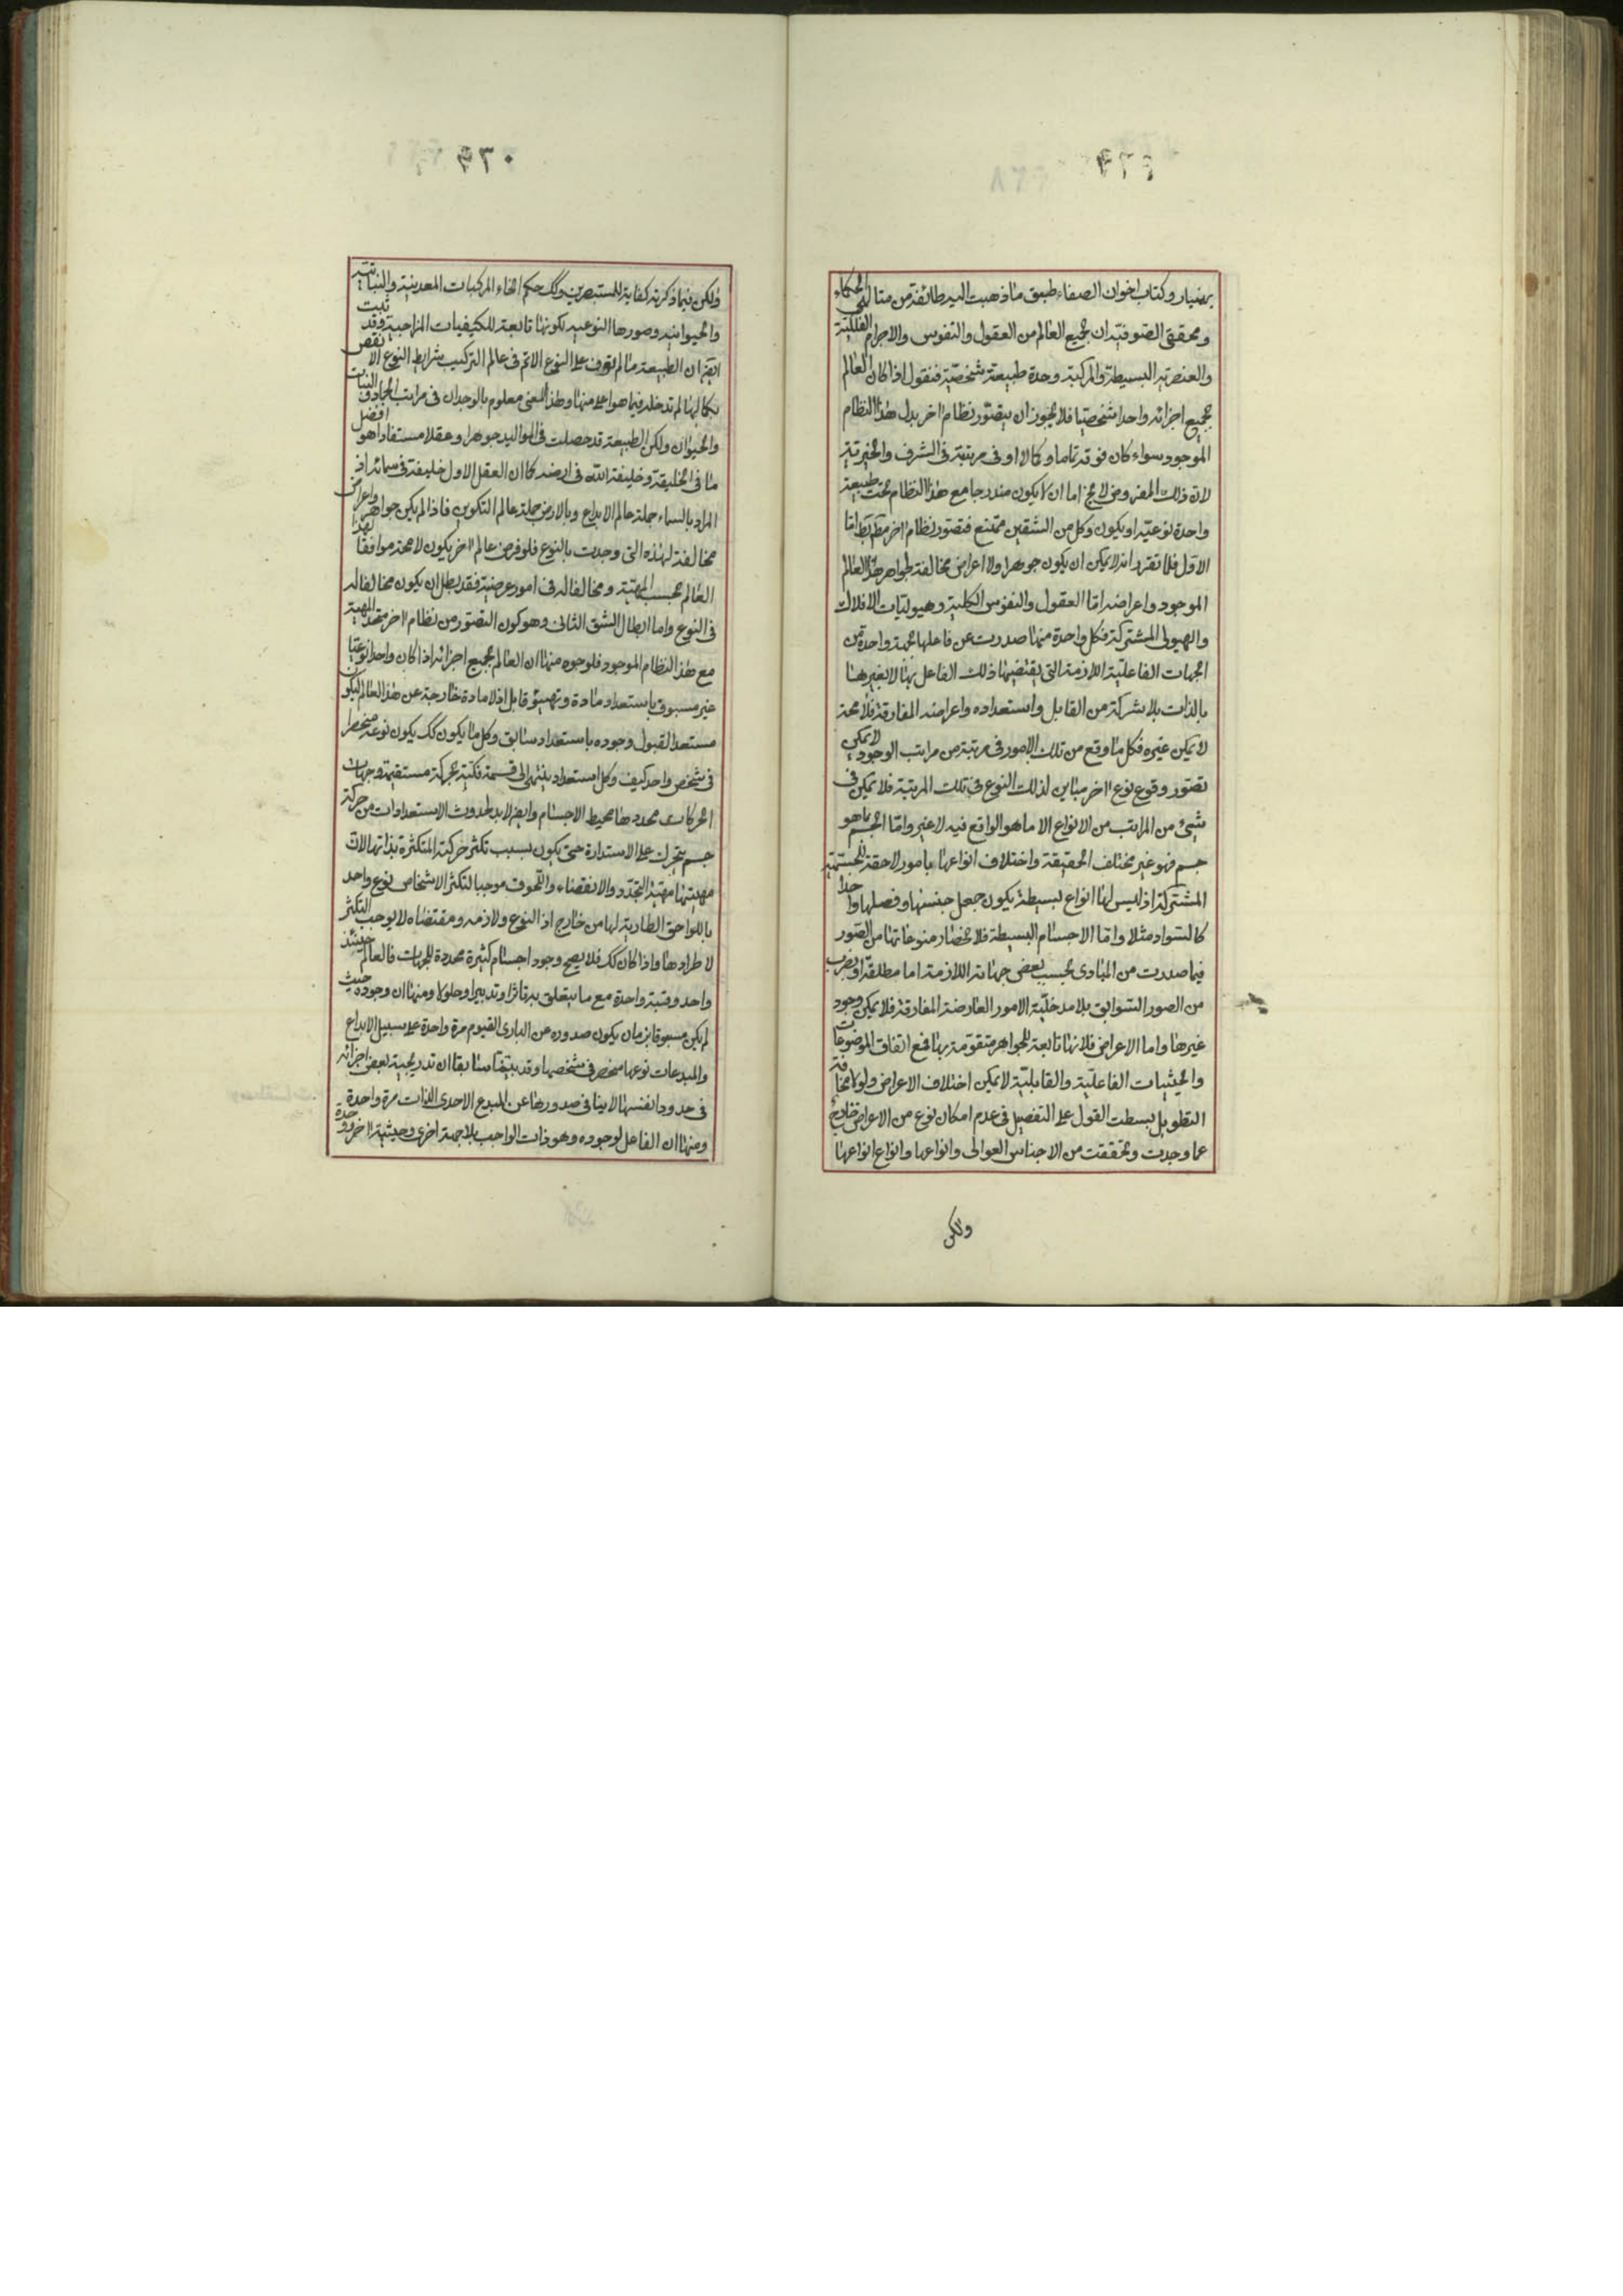 بهمنيار وكتاب اخوان الصفاء طبق ما ذهبت اليه طائفة من متالهى الحكماء
ومحققى الصوفية ان لجميع العالم من العقول والنفوس والاجرام الفلكية
والعنصرية البسيطة والمركبة وحدة طبيعة شخصية فنقول اذا كان العالم
بجميع اجزائه واحدا شخصيا فلا يجوز ان يتصور نظام اخر بدل هذا النظام
الموجود سواء كان فوقه تماما وكمالا او فى مرتبة فى الشرف والخيرية
لان ذلك المفروض لا يخ اما ان لا يكون مندرجا مع هذا النظام تحت طبيعة
واحدة نوعية او يكون وكل من الشقين ممتنع فتصور نظام اخر مط بط اما
الاول فلما تقرر انه لا يمكن ان يكون جوهرا ولا اعراض مخالفة لجواهر هذا العالم
الموجود واعراضه اما العقول والنفوس الكلية وهيوليات الافلاك
والهيولى المشتركة فكل واحدة منها صدرت عن فاعلها بجهة واحدة من
الجهات الفاعلية اللازمة التى يقتضيها ذلك الفاعل بها لا بغيرها
بالذات بلا شركة من القابل واستعداده واعراضه المفارقة فلا محة
لا يمكن غيره فكل ما وقع من تلك الامور فى مرتبة من مراتب الوجود لا يمكن
تصور وقوع نوع اخر مباين لذلك النوع فى تلك المرتبة فلا يمكن فى
شئ من المراتب من الانواع الا ما هو الواقع فيه لا غير واما الجسم بما هو
جسم فهو غير مختلف الحقيقة واختلاف انواعها بامور لاحقة للجسمية
المشتركة اذ ليس لها انواع بسيطة يكون جعل جنسها وفصلها واحدا
كالسواد مثلا واما الاجسام البسيطة فلانحصار منوعاتها من الصور
فيما صدرت من المبادى بحسب بعض جهاته اللازمة اما مطلقة او بضرب
من الصور السوابق بلا مدخلية الامور العارضة المفارقة فلا يمكن وجود
غيرها واما الاعراض فلانها تابعة للجواهر متقومة بها فمع اتفاق الموضوعات
والحيثيات الفاعلية والقابلية لا يمكن اختلاف الاعراض ولولا مخافة
التطويل لبسطت القول على التفصيل فى عدم امكان نوع من الاعراض خارجة
عما وجدت وتحققت من الاجناس العوالى وانواعها وانواع انواعها
ولكن
ولكن فيما ذكرته كفاية للمستبصرين وكك حكم انحاء المركبات المعدنية والنباتية
والحيوانية وصورها النوعية لكونها تابعة للكيفيات المزاجية وقد ثبت
ايضا ان الطبيعة ما لم توف على النوع الاتم فى عالم التركيب شرايط النوع الانقص
بكمالها لم تدخله فيما هو اعلى منها وهذا المعنى معلوم بالوجدان فى مراتب الجماد والنبات
والحيوان ولكن الطبيعة قد حصلت فى المواليد جوهرا وعقلا مستفادا هو افضل
ما فى الخليقة وخليفة الله فى ارضه كما ان العقل الاول خليفة فى سمائه اذ
المراد بالسماء جملة عالم الابداع وبالارض جملة عالم التكوين فاذا لم يكن جواهر واعراض
مخالفة لهذه التى وجدت بالنوع فلو فرض عالم اخر يكون لا محة موافقا لهذا
العالم بحسب المهية ومخالفا له فى امور عرضية فقد بطل ان يكون مخالفا له
فى النوع واما ابطال الشق الثانى وهو كون التصور من نظام اخر متحد المهية
مع هذا النظام الموجود فلوجوه منها ان العالم بجميع اجزائه اذا كان واحدا نوعيا
غير مسبوق باستعداد مادة وتهيؤ قابل اذ لا مادة خارجة عن هذا العالم ليكون
مستعدا لقبول وجوده باستعداد سابق وكل ما يكون كك يكون نوعه منحصرا
فى شخص واحد كيف وكل استعداد ينتهى الى قسمة فكية بحركة مستقيمة وجهات
الحركات محددها محيط الاجسام وايض لا بد لحدوث الاستعدادات من حركة
جسم يتحرك على الاستدارة حتى يكون بسبب تكثر حركته المتكثرة بذاتها لان
مهيتها مهية التجدد والانقضاء واللحوق موجبا لتكثر الاشخاص لنوع واحد
باللواحق الطارية لها من خارج اذ النوع ولازمه ومقتضاه لا يوجب التكثر
لاطرادها واذا كان كك فلا يصح وجود اجسام كثيرة محددة للجهات فالعالم حينئذ
واحد وقتية واحدة مع ما يتعلق به تاثرا وتدبيرا وحلولا ومنها ان وجوده حيث
لم يكن مسبوقا بزمان يكون صدوره عن البارى القيوم مرة واحدة على سبيل الابداع
والمبدعات نوعها منحصر فى شخصها وقد بينا سابقا ان تدريجية بعض اجزائه
فى حدود انفسها لا ينافى صدورها عن المبدع الاحدى الذات مرة واحدة
ومنها ان الفاعل لوجوده وهو ذات الواجب بلا جهة اخرى وحيثية اخر ووحدة